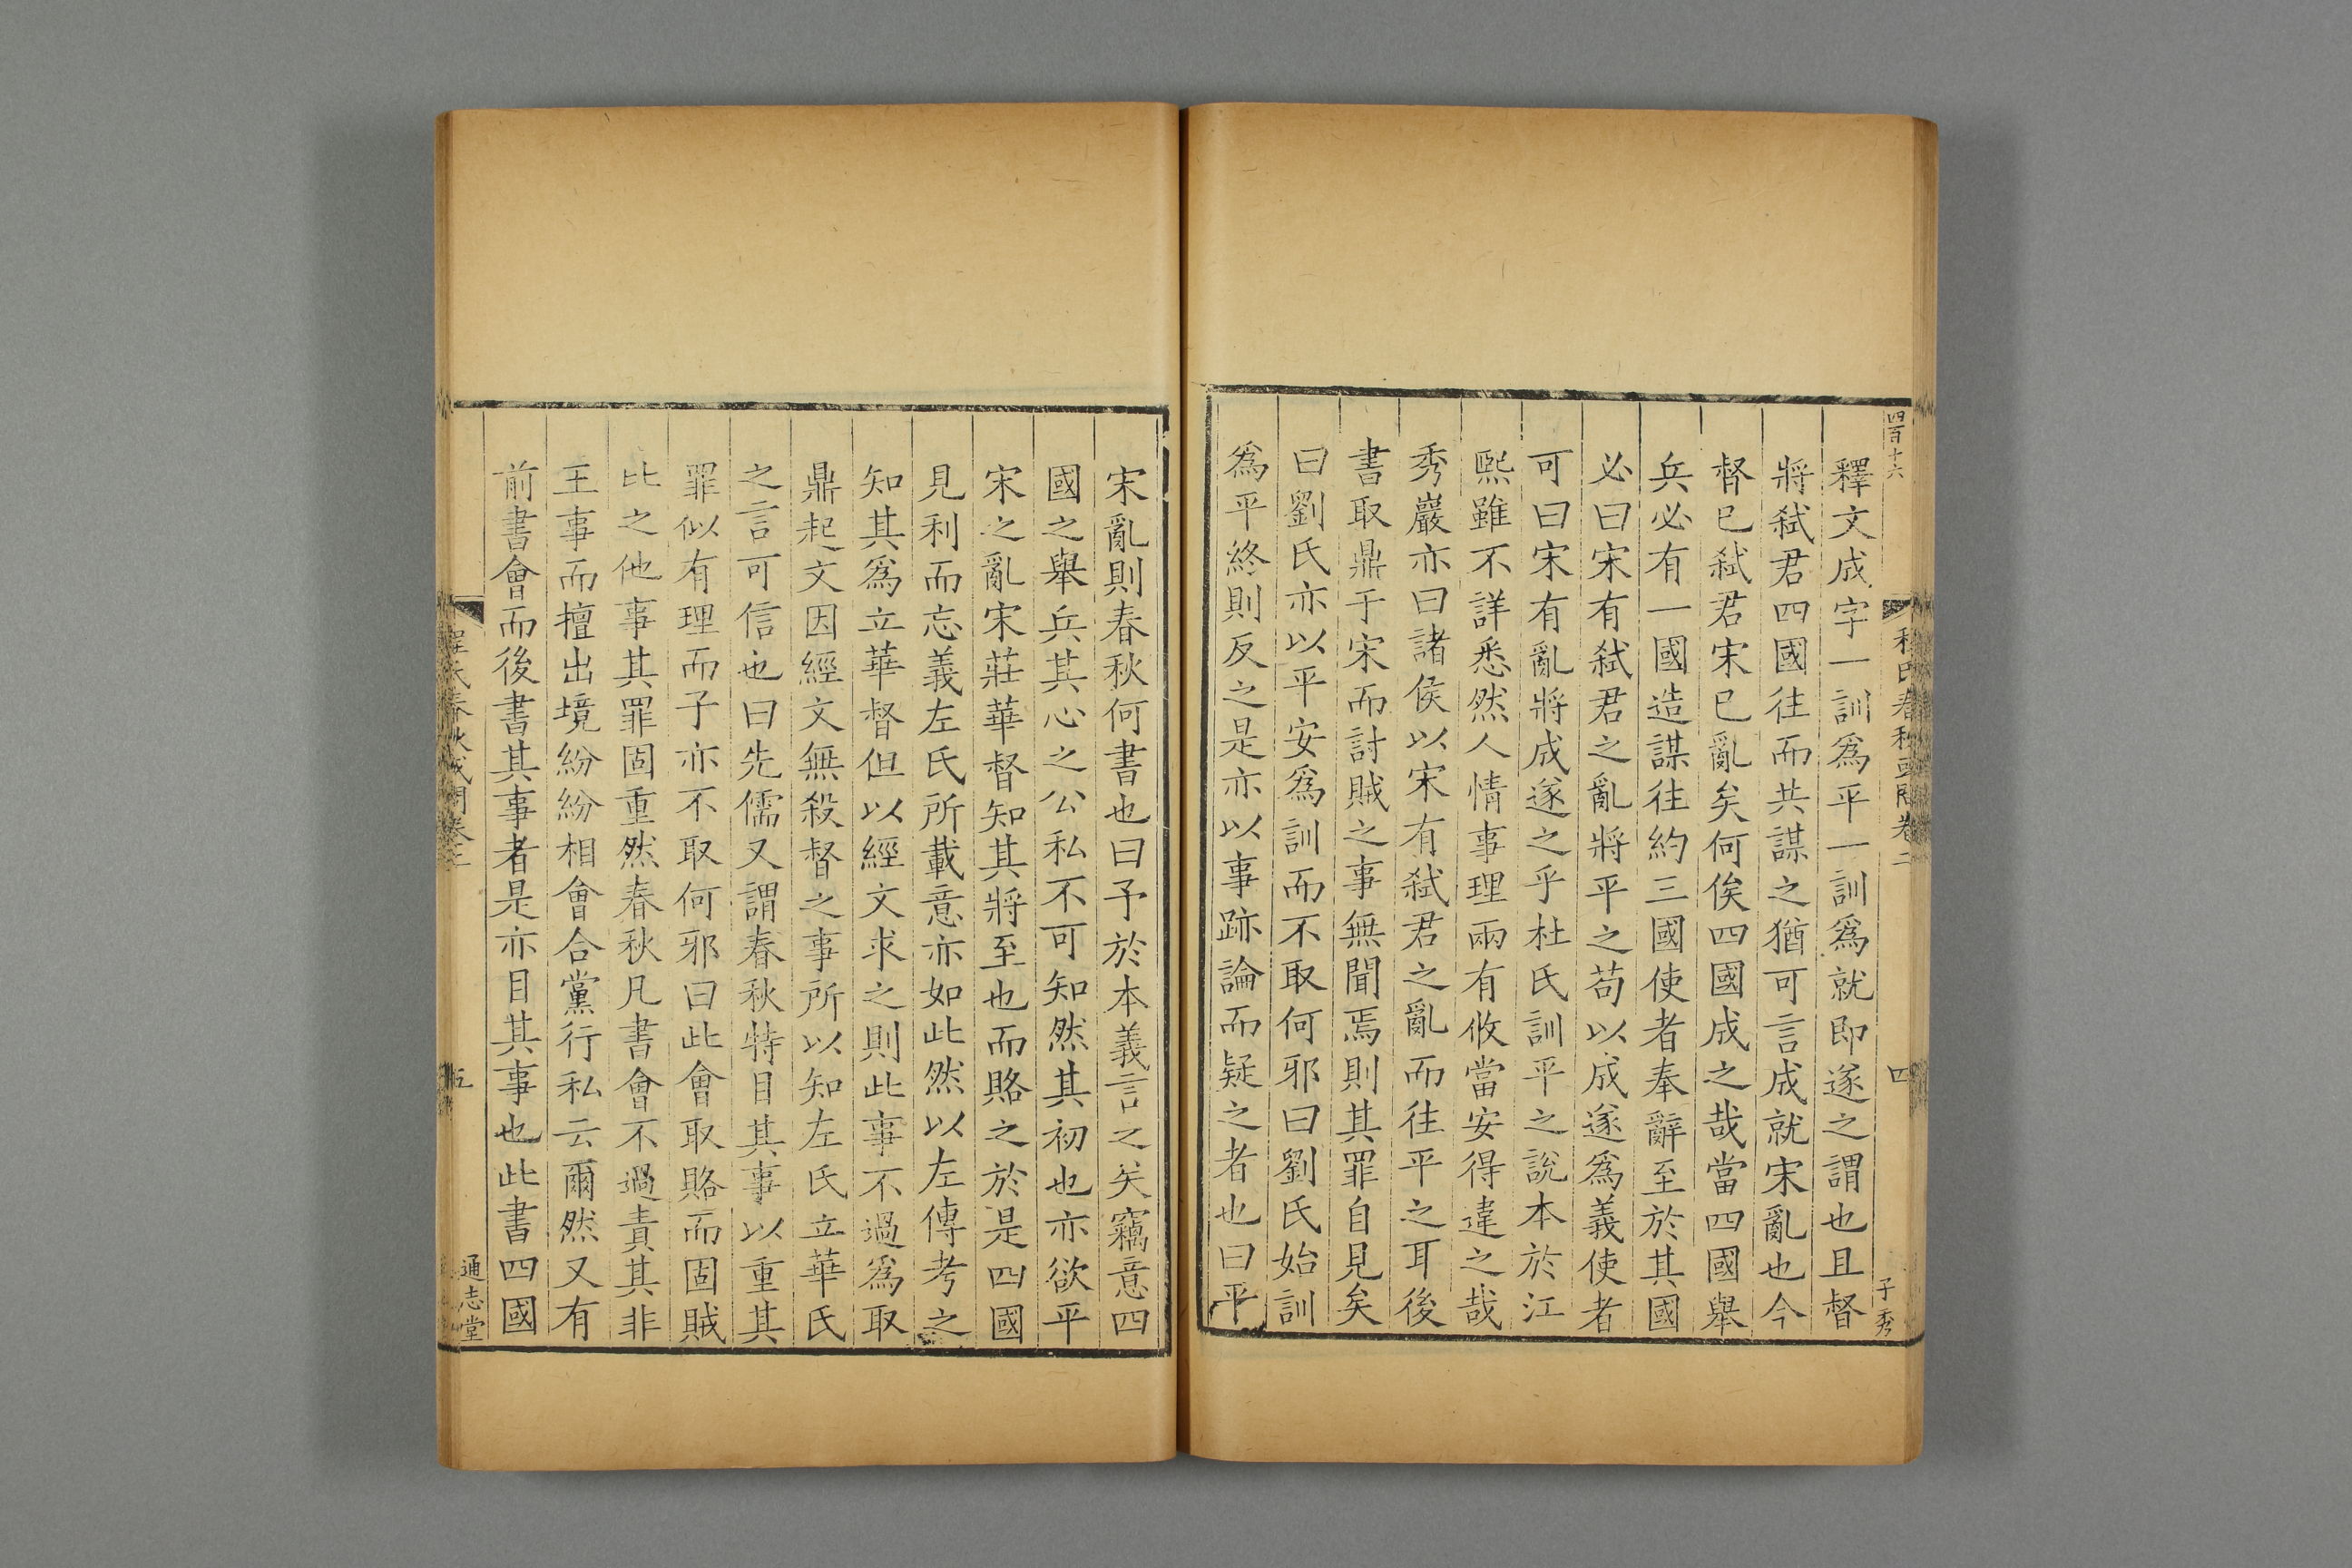 四百十六
程氏春秋或問卷二
四
子秀
釋文成字一訓爲平一訓爲就即遂之謂也且督
將弑君四國往而共謀之猶可言成就宋亂也今
督已弑君宋已亂矣何俟四國成之哉當四國舉
兵必有一國造謀往約三國使者奉辭至於其國
必曰宋有弑君之亂將平之苟以成遂爲義使者
可曰宋有亂將成遂之乎杜氏訓平之說本於江
熙雖不詳悉然人情事理兩有攸當安得違之哉
秀巖亦曰諸侯以宋有弑君之亂而往平之耳後
書取鼎于宋而討賊之事無聞焉則其罪自見矣
曰劉氏亦以平安爲訓而不取何邪曰劉氏始訓
爲平終則反之是亦以事跡論而疑之者也曰平
宋亂則春秋何書也曰予於本義言之矣竊意四
國之舉兵其心之公私不可知然其初也亦欲平
宋之亂宋莊華督知其將至也而賂之於是四國
見利而忘義左氏所載意亦如此然以左傳考之
知其爲立華督但以經文求之則此事不過爲取
鼎起文因經文無殺督之事所以知左氏立華氏
之言可信也曰先儒又謂春秋特目其事以重其
罪似有理而子亦不取何邪曰此會取賂而固賊
比之他事其罪固重然春秋凡書會不過責其非
王事而擅出境紛紛相會合黨行私云爾然又有
前書會而後書其事者是亦目其事也此書四國
程氏春秋或問卷二
五
通志堂